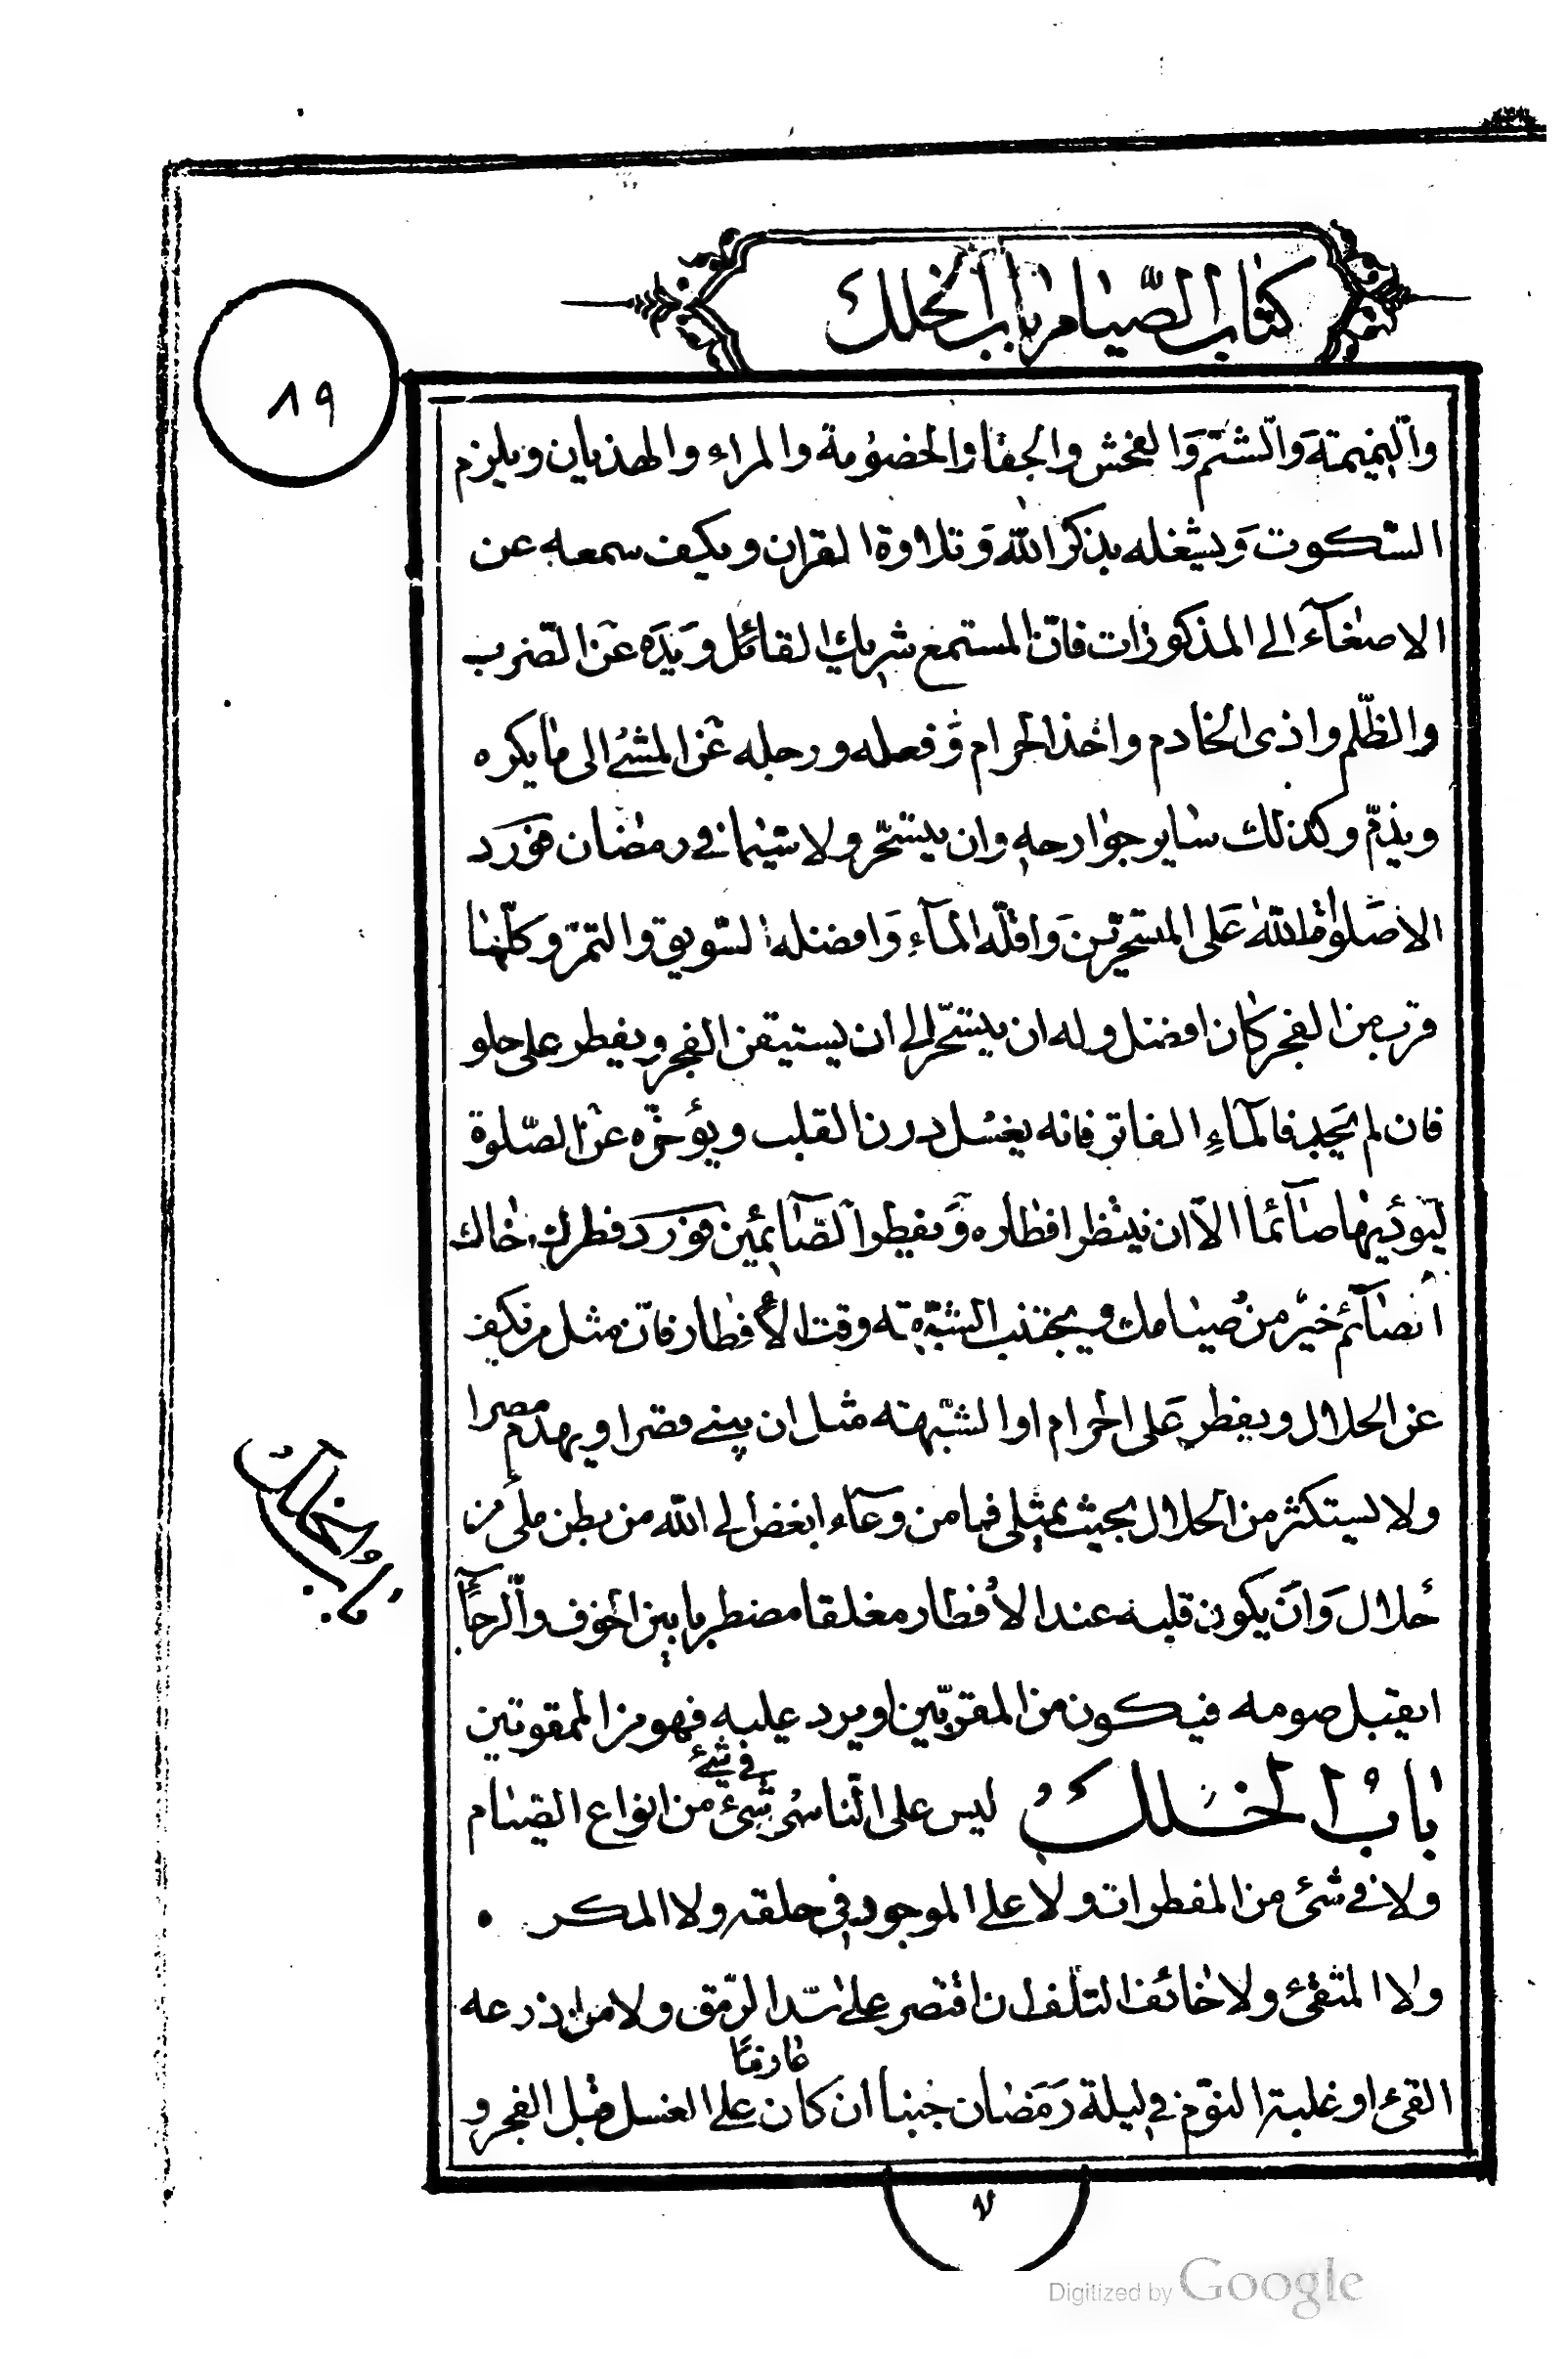 كتاب الصّيام باب الخلل
٨٩
والنّميمة وَالشّتم وَالفحش والجفا والخصُومة والمراء والهذيان ويلزم
السّكوت وَيشغله بذكر اللّه وَتلاوة القران ويكف سمعه عن
الاصغآء الى المذكورات فانّ المستمع شريك القائل وَيَدَه عَن الضّرب
والظّلم واذى الخادم واخذ الحرام وَفعله ورجله عَن المشئ الى ما يكره
ويذمّ وكذلك ساير جوارحه وان يتسحّر ولا سيّما فى رمضان فورد
الا صَلواة اللّه عَلى المتسحّرين وَاقلّه المآء وَافضله السّويق والتمر وكلّما
قرب من الفجر كان افضل وله ان يتسحّر الى ان يستيقن الفجر ويفطر على حلو
فان لم يَجد فالمآءِ الفاتر فانه يغسُل درن القلب ويؤخّره عَن الصّلوة
ليؤديها صآئما الاّ ان ينتظر افطاره وَيفطر الصّآئمين فورد فطرك اخاك
الصآئم خيرٌ من صيامك ويجتنب الشبّهة وقت الأفطار فانّ مثل من يكف
عن الحلال ويفطر عَلى الحرام او الشّبهة مثل ان يبنى قصرا ويهدم مصرا
ولا يستكثر من الحلال بحيث يمتلى فما من وعآء ابغض الى اللّه من بطن ملئ من
حلال وَان يكون قلبه عند الأفطار مغلقا مضطربا بين الخوف والرجآء
ايقبل صومه فيكون من المقرّبين او يرد عليه فهو من الممقوتين
باب الخلل ليس على النّاسى شئ من انواع الصّيام
فى شئ
ولا فى شئ من المفطرات ولا على الموجود فى حلقه ولا المكره
ولا المتقئ ولا خائف التلف ان اقتصر على سّد الرّمق ولا من ذرعه
عازمًا
القئ او غلبة النّوم فى ليلة رَمَضان جنبا ان كان على الغسل قبل الفجر و
باب الخلل